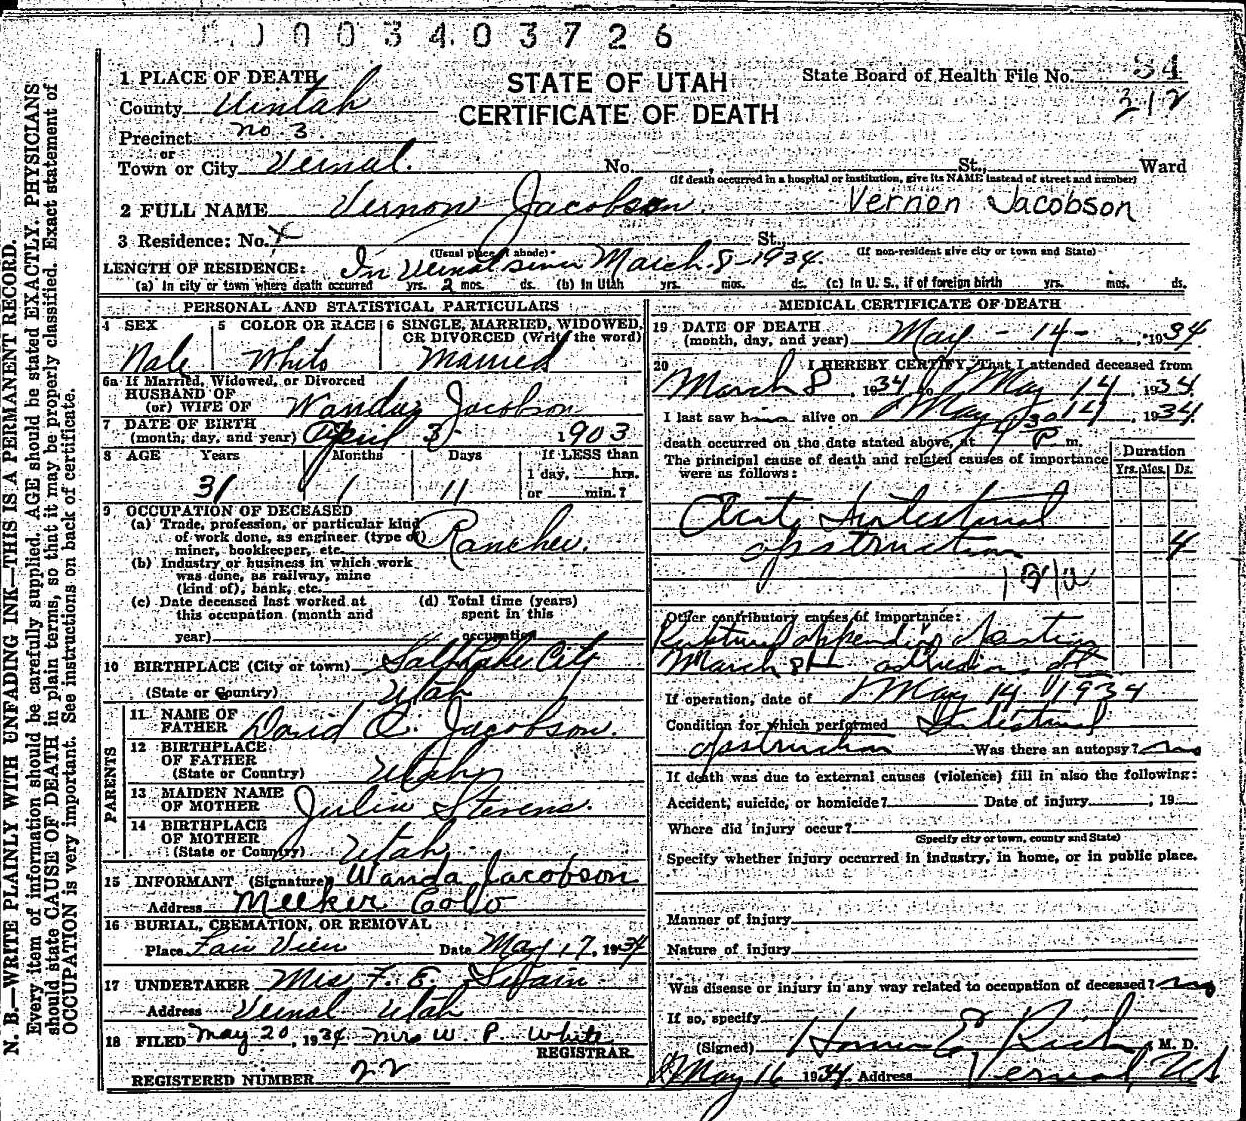 0 0 3 4 0 3 7 2 6
N. B.—WRITE PLAINLY WITH UNFADING INK—THIS IS A PERMANENT RECORD.
Every item of information should be carefully supplied. AGE should be stated EXACTLY. PHYSICIANS
should state CAUSE OF DEATH in plain terms, so that it may be properly classified. Exact statement of
OCCUPATION is very important. See instructions on back of certificate.
STATE OF UTAH
CERTIFICATE OF DEATH
State Board of Health File No. 34
212
1 PLACE OF DEATH
County Uintah
Precinct no 3.
or
Town or City Vernal. No. St., Ward
(If death occurred in a hospital or institution, give its NAME instead of street and number)
2 FULL NAME Vernon Jacobson. Vernon Jacobson
3 Residence: No. St.,
(Usual place of abode) (If non-resident give city or town and State)
LENGTH OF RESIDENCE: In Vernal since March 8-1934
(a) In city or town where death occurred yrs. 2 mos. ds. (b) In Utah yrs. mos. ds. (c) In U. S., if of foreign birth yrs. mos. ds.
PERSONAL AND STATISTICAL PARTICULARS
4 SEX 5 COLOR OR RACE 6 SINGLE, MARRIED, WIDOWED, OR DIVORCED (Write the word)
Male White Married
6a If Married, Widowed, or Divorced
HUSBAND OF
(or) WIFE OF Wanda Jacobson
7 DATE OF BIRTH
(month, day, and year) April 3 1903
8 AGE Years Months Days If LESS than
1 day, hrs.
31 1 11 or min.?
9 OCCUPATION OF DECEASED
(a) Trade, profession, or particular kind
of work done, as engineer (type of) Rancher.
miner, bookkeeper, etc.
(b) Industry or business in which work
was done, as railway, mine
(kind of), bank, etc.
(c) Date deceased last worked at (d) Total time (years)
this occupation (month and spent in this
year) occupation
10 BIRTHPLACE (City or town) Salt Lake City
(State or Country) Utah
PARENTS
11 NAME OF
FATHER David E. Jacobson.
12 BIRTHPLACE
OF FATHER
(State or Country) Utah
13 MAIDEN NAME
OF MOTHER Julia Stevens.
14 BIRTHPLACE
OF MOTHER
(State or Country) Utah
15 INFORMANT (Signature) Wanda Jacobson
Address Meeker Colo
16 BURIAL, CREMATION, OR REMOVAL
Place Fair View Date May 17, 1934
17 UNDERTAKER Mrs F. E.
Address Vernal Utah
18 FILED May 20, 1934 Mrs W. P. White
REGISTRAR
REGISTERED NUMBER 22
MEDICAL CERTIFICATE OF DEATH
19 DATE OF DEATH
(month, day, and year) May - 14 - , 1934
20 I HEREBY CERTIFY, That I attended deceased from
March 8, 1934 to May 14, 1934
I last saw him alive on May 14, 1934.
death occurred on the date stated above, at 430 P m.
The principal cause of death and related causes of importance
were as follows:
Duration
Yrs. Mos. Ds.
Acute Intestinal
obstruction 4
Other contributory causes of importance:
Ruptured appendix
March 8 adhesions
If operation, date of May 14 1934
Condition for which performed Intestinal
obstruction Was there an autopsy? no
If death was due to external causes (violence) fill in also the following:
Accident, suicide, or homicide? Date of injury , 19
Where did injury occur?
(Specify city or town, county and State)
Specify whether injury occurred in industry, in home, or in public place.
Manner of injury
Nature of injury
Was disease or injury in any way related to occupation of deceased? no
If so, specify
(Signed) Homer E Rich, M. D.
May 16 1934. Address Vernal, Ut